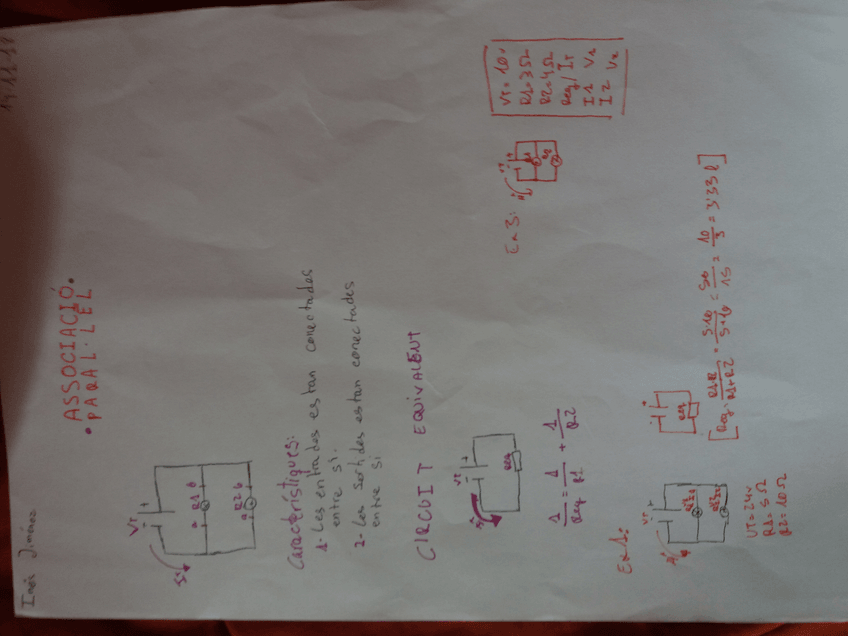 Jiménez
• ASSOCIACIÓ •
PARAL·LEL
VT
R1
R2
Característiques:
1- Les entrades estan conectades
entre si.
2- Les sortides estan conectades
entre si
CIRCUIT EQUIVALENT
VT
Req
1/Req = 1/R1 + 1/R2
Ex 1:
VT
VT=24v
R1=5Ω
R2=10Ω
Req
[Req: R1·R2/R1+R2 = 5·10/5+10 = 50/15 = 10/3 = 3'33
Ex 3:
VT=10v
R1=3Ω
R2=4Ω
Req/IT
I1 V1
I2 V2